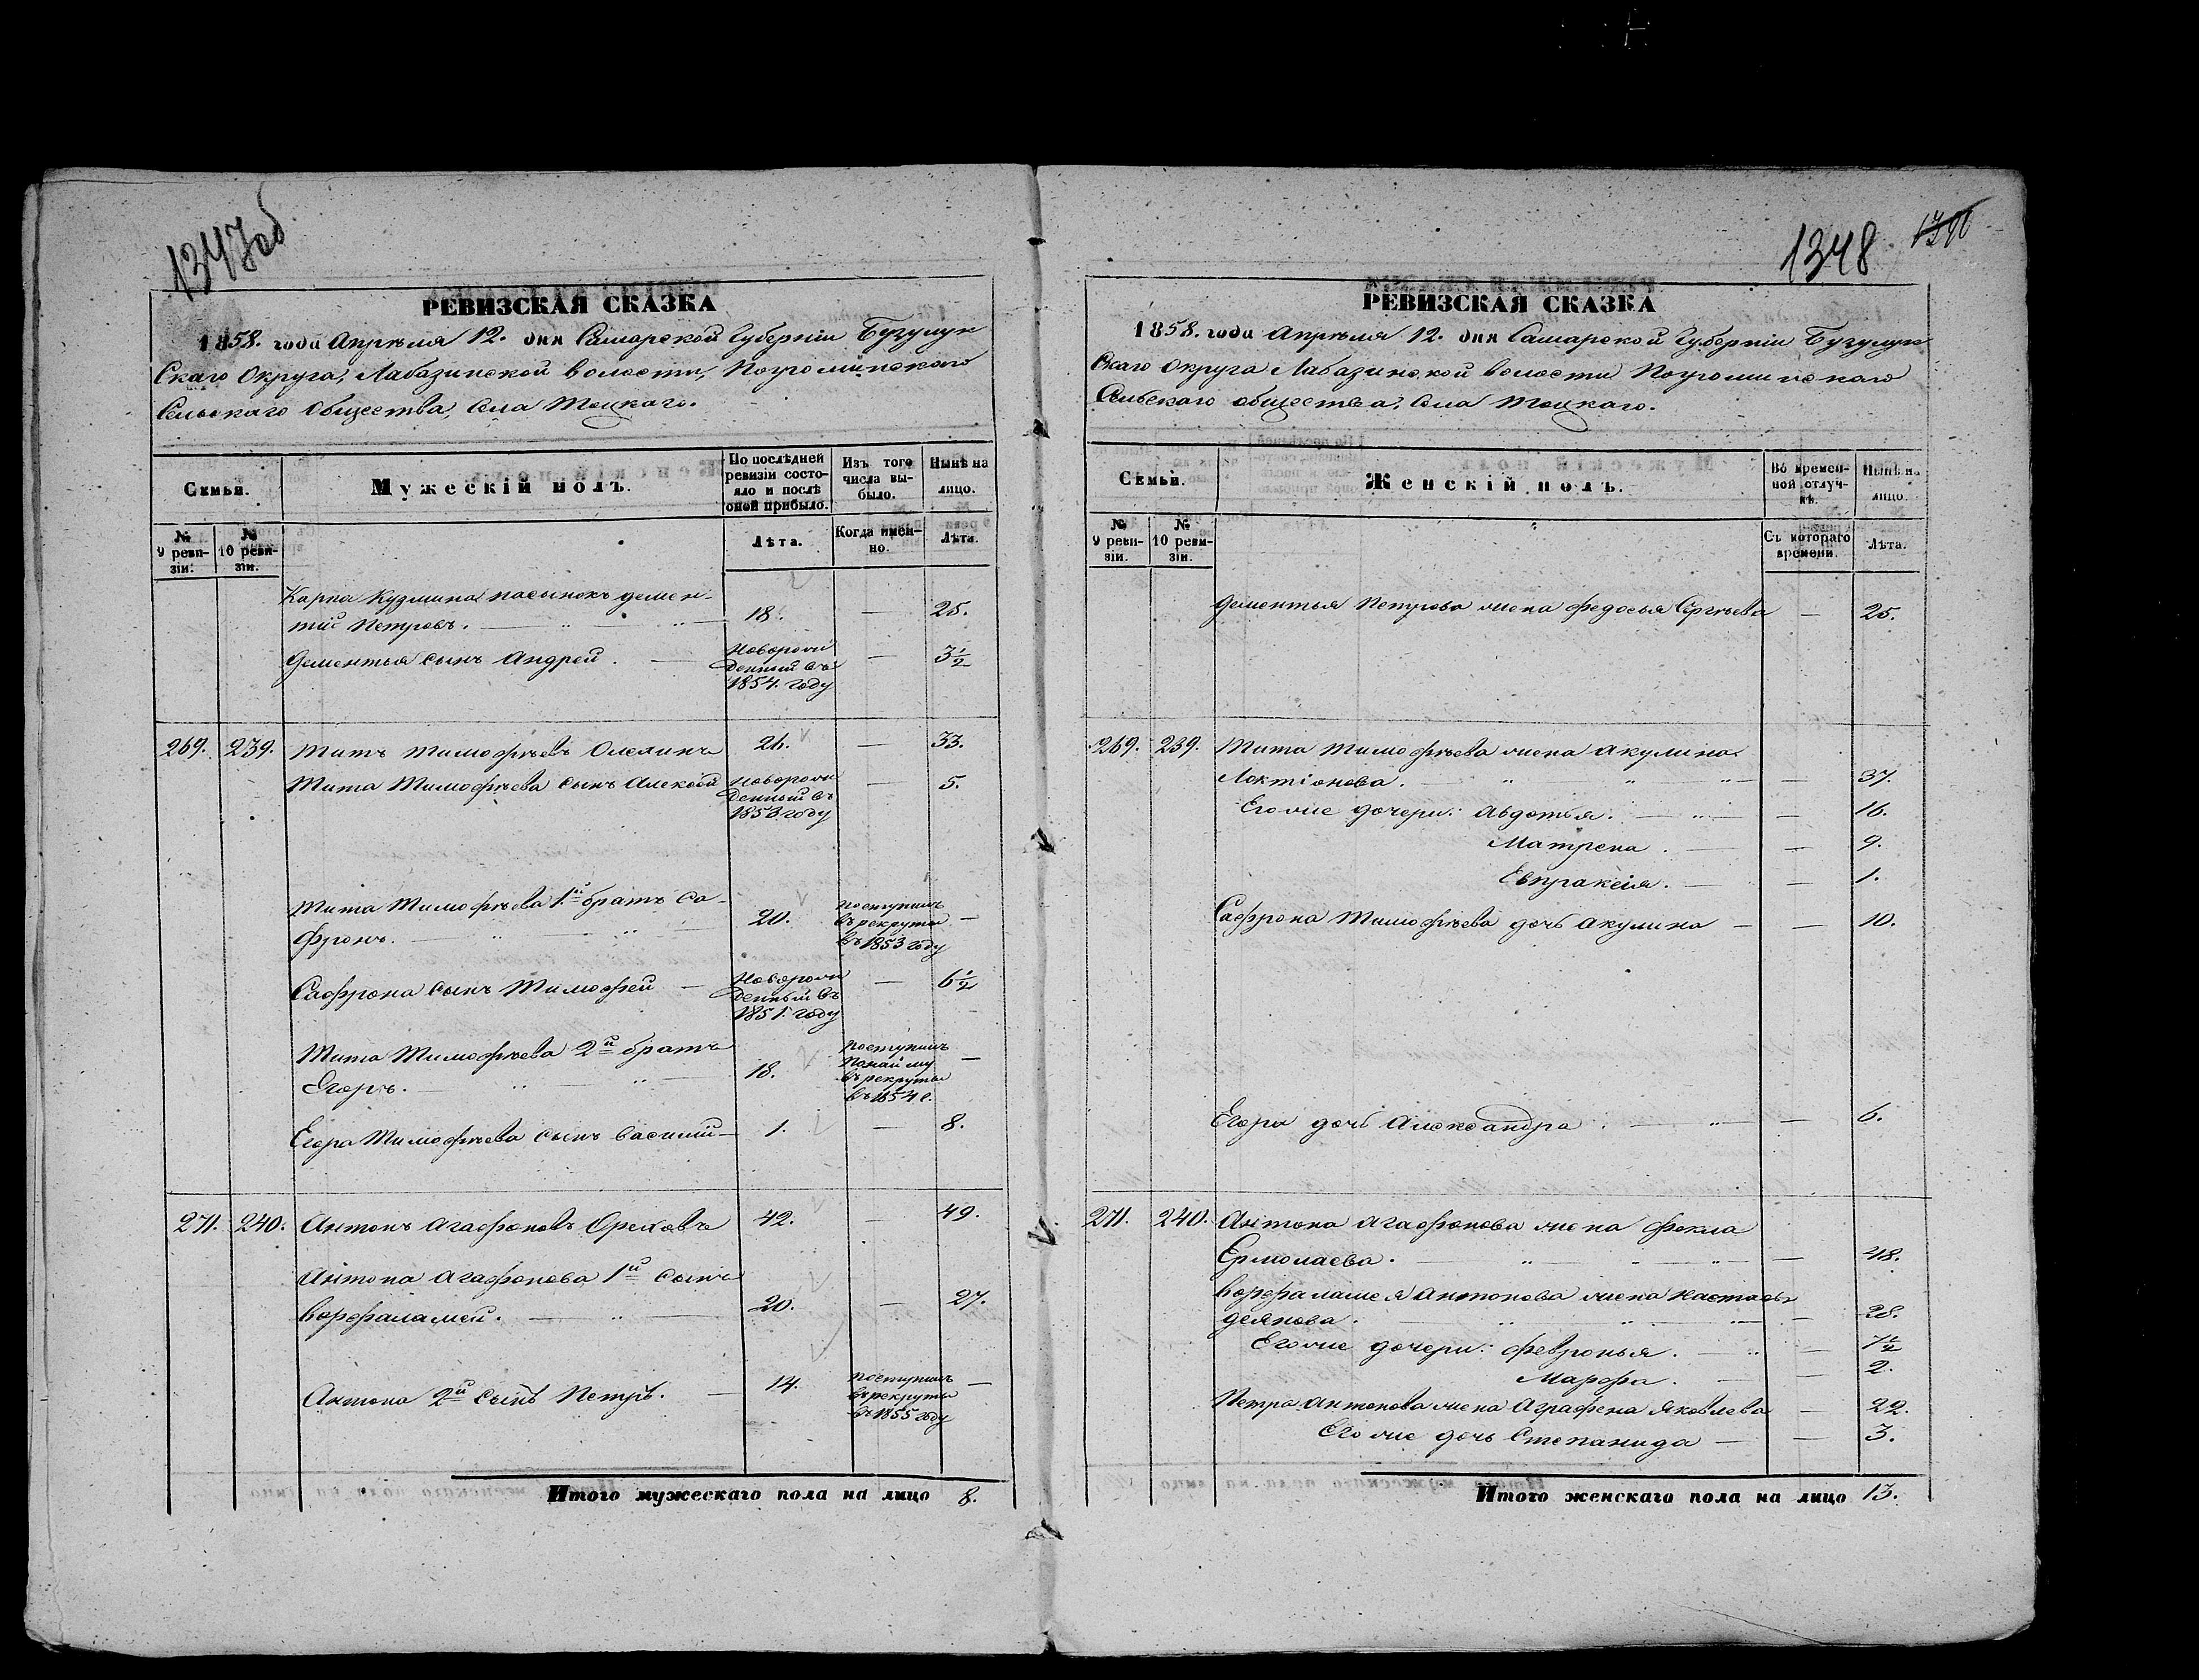 1347об
РЕВИЗСКАЯ СКАЗКА
1858. года Апрѣля 12. дня Самарской Губернiи Бузулук
скаго Округа, Лабазинской волости, Погроминскаго
Сельскаго Общества, Села Тоцкаго.
Семьи.
Мужескiй полъ.
По послѣдней
ревизiи состо-
яло и послѣ
оной прибыло.
Изъ того
числа вы-
было.
Нынѣ на
лицо.
№
9 реви-
зiи.
№
10 реви-
зiи.
Лѣта.
Когда имен-
но.
Лѣта.
Карпа Кузмина пасынокъ Демен-
тiй Петровъ. 18. — 25.
Дементья сынъ Андрей. Новорож
денный въ
1854. году — 3½
269. 239. Титъ Тимофѣевъ 26. — 33.
Тита Тимофѣева сынъ Алексѣй Новорож
денный въ
1853 году — 5.
Тита Тимофѣева 1й братъ Са-
фронъ. 20. поступилъ
въ рекруты
въ 1853 году —
Сафрона сынъ Тимофей — Новорож
денный въ
1851. году — 6½
Тита Тимофѣева 2й братъ
Егоръ. 18. поступилъ
по найму
въ рекруты
въ 1854 г. —
Егора Тимофѣева сынъ Василiй — 1. — 8.
271. 240. Антонъ Агафоновъ Ореховъ 42. — 49.
Антона Агафонова 1й сынъ
Ворфаламей. 20. — 27.
Антона 2й сынъ Петръ. — 14. поступилъ
въ рекруты
въ 1855 году —
Итого мужескаго пола на лицо 8.
1348
РЕВИЗСКАЯ СКАЗКА
1858. года Апрѣля 12. дня Самарской Губернiи Бузулук
скаго Округа Лабазинской волости Погроминскаго
Сельскаго общества, Села Тоцкаго.
Семьи.
Женскiй полъ.
Во времен-
ной отлуч-
кѣ.
Нынѣ на
лицо.
№
9 реви-
зiи.
№
10 реви-
зiи.
Съ котораго
времени.
Лѣта.
Дементья Петрова жена Федосья Сергѣева — 25.
269. 239. Тита Тимофѣева жена Акулина
Локтiонова. — 37.
Его же дочери: Авдотья. — 16.
Матрена. — 9.
Евпраксiя. — 1.
Сафрона Тимофѣева дочь Акулина — 10.
Егора дочь Александра. — 6.
271. 240. Антона Агафонова жена Фекла
Ермолаева. — 48.
Ворфаламея Антонова жена Настасья
— 28.
Его же дочери: Февронья. — 7½
Марфа. — 2.
Петра Антонова жена Аграфена Яковлева — 22.
Его же дочь Степанида — 3.
Итого женскаго пола на лицо 13.